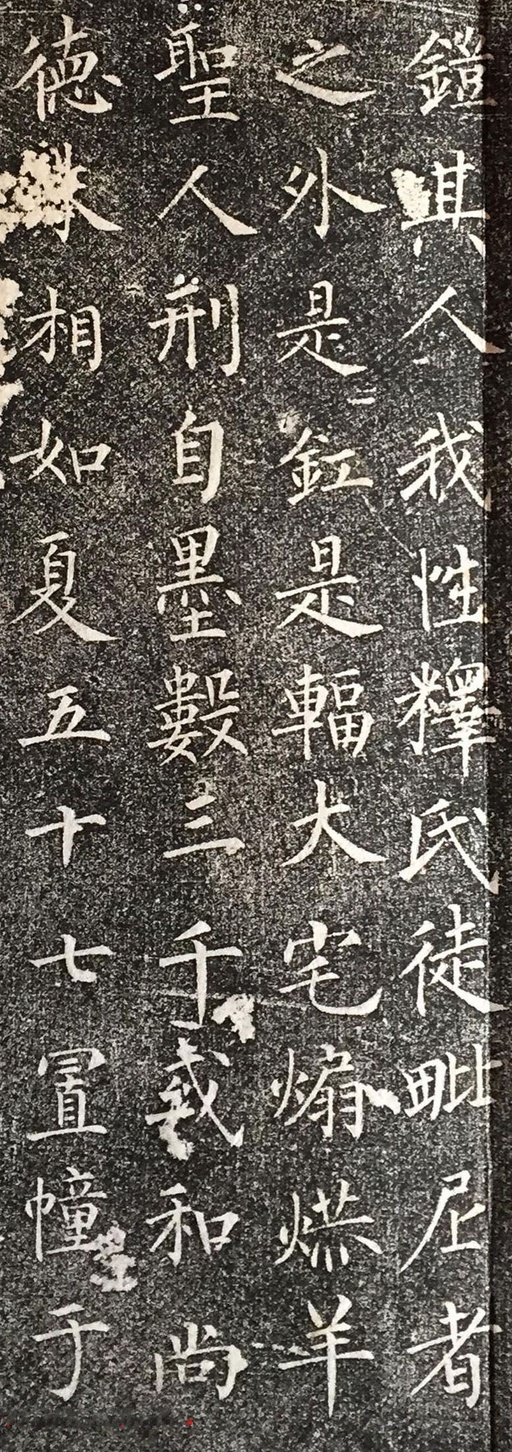 鎧其人我性釋氏徒毗尼者
之外是釭是輻大宅煽羊
聖人刑自墨數三千戒和尚
德殊相如夏五十七置幢于